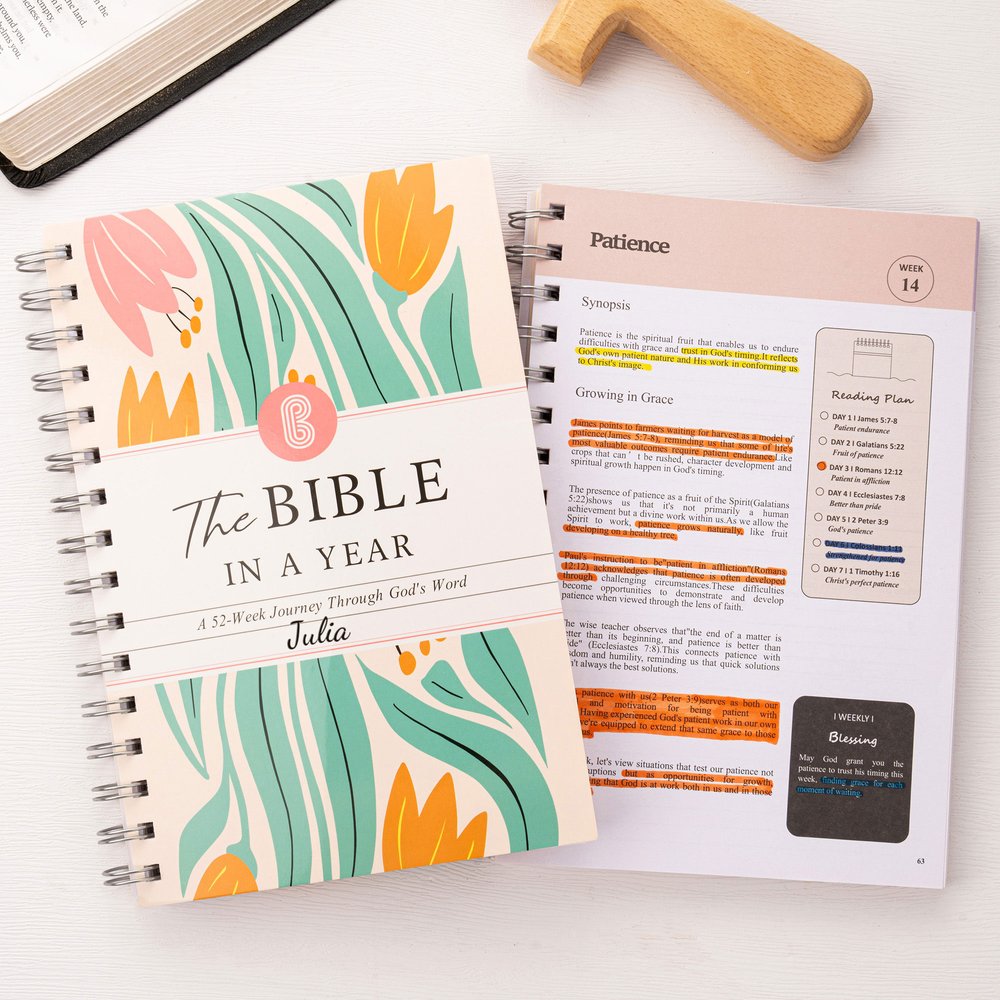 the land.
empty,
erless were
around you.
helms you.
B
The BIBLE
IN A YEAR
A 52-Week Journey Through God's Word
Julia
Patience
WEEK
14
Synopsis
Patience is the spiritual fruit that enables us to endure
difficulties with grace and trust in God's timing.It reflects
God's own patient nature and His work in conforming us
to Christ's image.
Growing in Grace
James points to farmers waiting for harvest as a model of
patience(James 5:7-8), reminding us that some of life's
most valuable outcomes require patient endurance.Like
crops that can't be rushed, character development and
spiritual growth happen in God's timing.
The presence of patience as a fruit of the Spirit(Galatians
5:22)shows us that it's not primarily a human
achievement but a divine work within us.As we allow the
Spirit to work, patience grows naturally, like fruit
developing on a healthy tree.
Paul's instruction to be"patient in affliction"(Romans
12:12) acknowledges that patience is often developed
through challenging circumstances.These difficulties
become opportunities to demonstrate and develop
patience when viewed through the lens of faith.
The wise teacher observes that"the end of a matter is
etter than its beginning, and patience is better than
ride" (Ecclesiastes 7:8).This connects patience with
sdom and humility, reminding us that quick solutions
n't always the best solutions.
patience with us(2 Peter 3:9)serves as both our
and motivation for being patient with
Having experienced God's patient work in our own
we're equipped to extend that same grace to those
us.
k, let's view situations that test our patience not
ruptions but as opportunities for growth,
ing that God is at work both in us and in those
Reading Plan
DAY 1 I James 5:7-8
Patient endurance
DAY 2 I Galatians 5:22
Fruit of patience
DAY 3 I Romans 12:12
Patient in affliction
DAY 4 I Ecclesiastes 7:8
Better than pride
DAY 5 I 2 Peter 3:9
God's patience
DAY 6 I Colossians 1:11
Strengthened for patience
DAY 7 I 1 Timothy 1:16
Christ's perfect patience
I WEEKLY I
Blessing
May God grant you the
patience to trust his timing this
week, finding grace for each
moment of waiting.
63